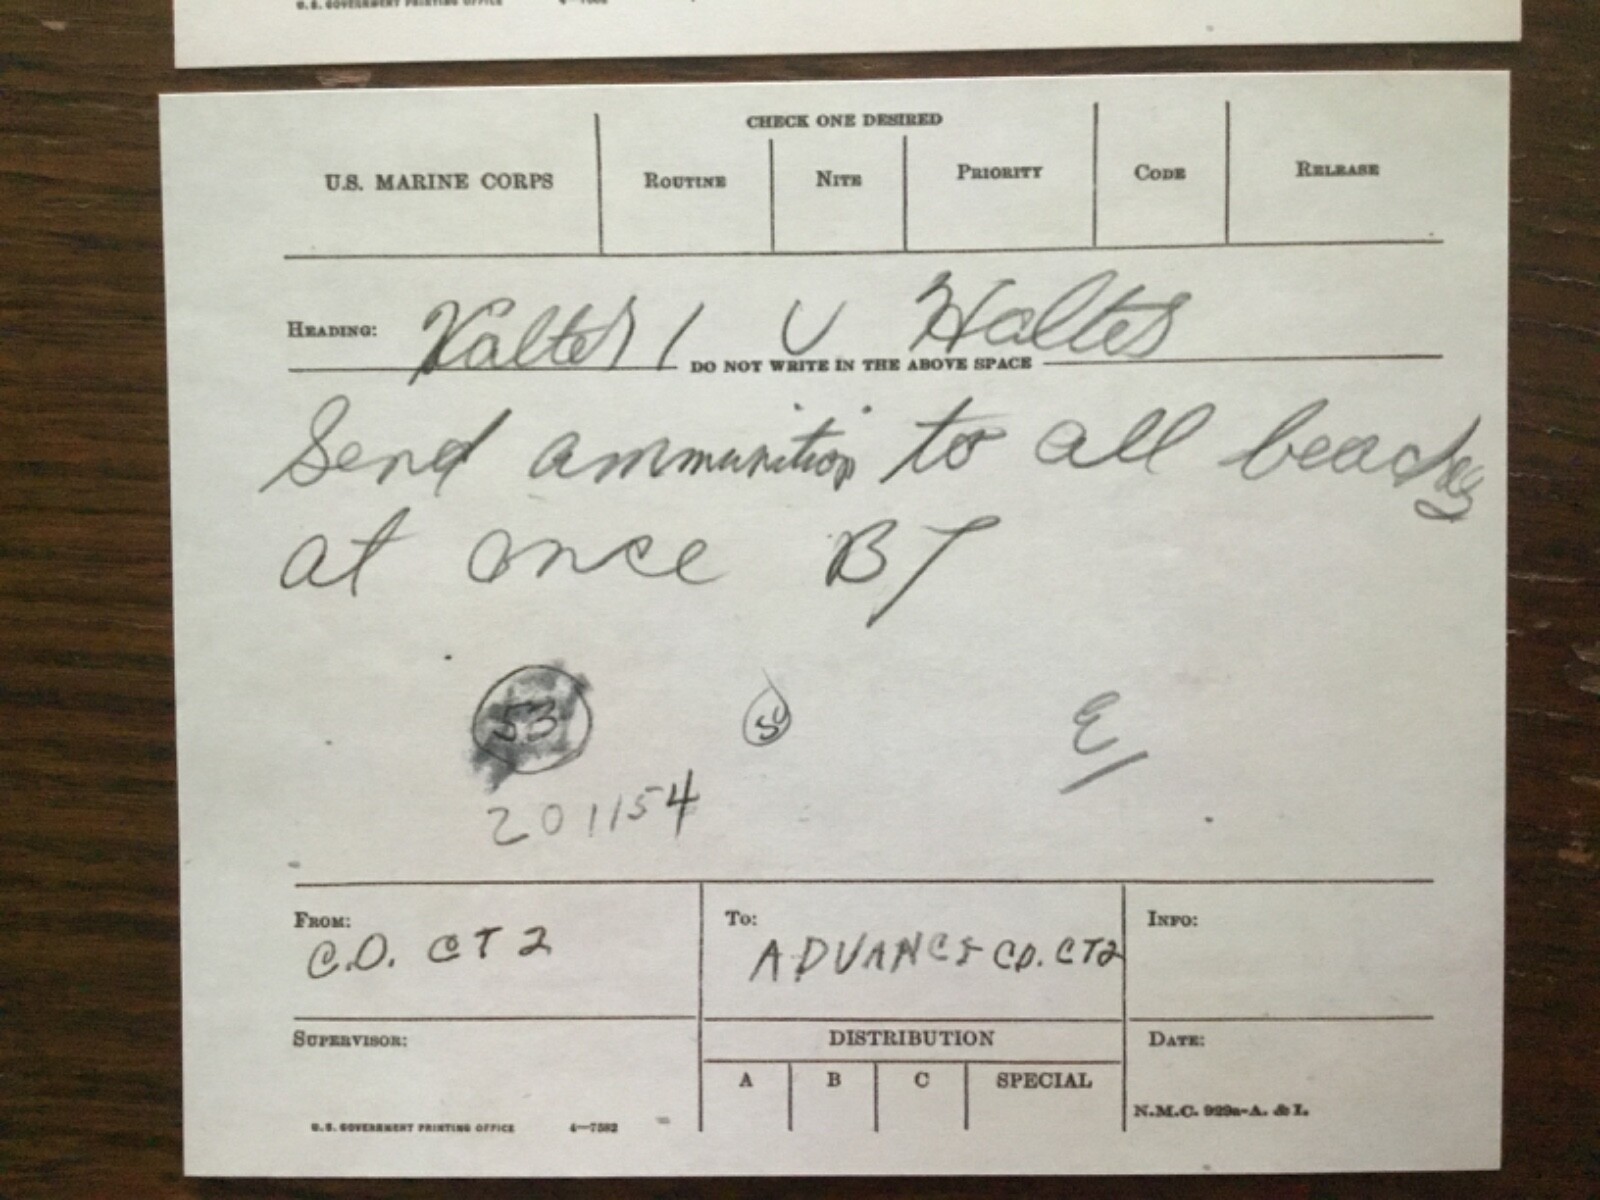 U.S. GOVERNMENT PRINTING OFFICE
CHECK ONE DESIRED
U.S. MARINE CORPS ROUTINE NITE PRIORITY CODE RELEASE
HEADING: 1 V Halter
DO NOT WRITE IN THE ABOVE SPACE
Send ammunition to all beaches
at once BT
53 E
201154
FROM: TO: INFO:
C.O. CT2 ADVANCE CP. CT2
SUPERVISOR: DISTRIBUTION DATE:
A B C SPECIAL
N.M.C. 929a-A. & I.
U.S. GOVERNMENT PRINTING OFFICE 4—7582